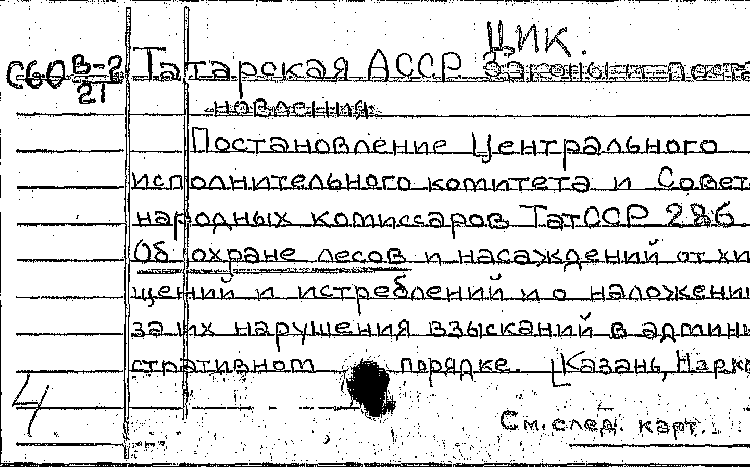 ЦИК.
С60 В-2/21 Татарская АССР Законы и поста
новления.
Постановление Центрального
исполнительного комитета и Совет
народных комиссаров ТатССР 286
Об охране лесов и насаждений от хи
щений и истреблений и о наложени
за их нарушения взысканий в админи
стративном порядке. [Казань, Нарк
4
См. след. карт.